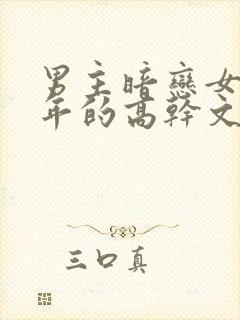 男主暗戀女
年的高幹文
三口真